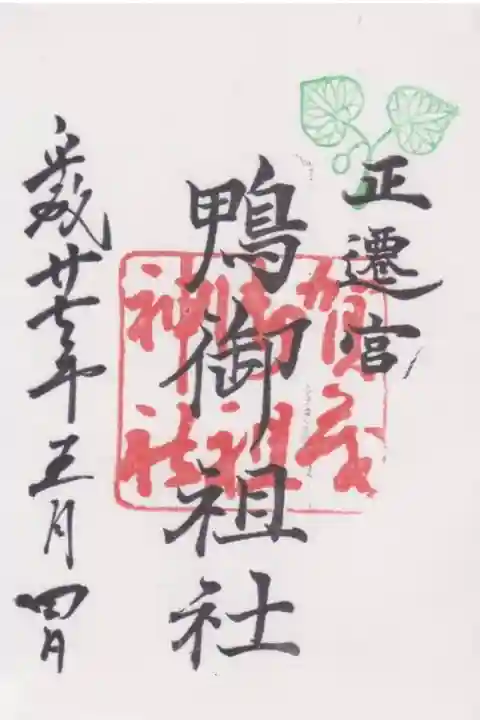 正遷宮
鴨御祖社
賀茂
御祖
神社
平成廿七年五月四日